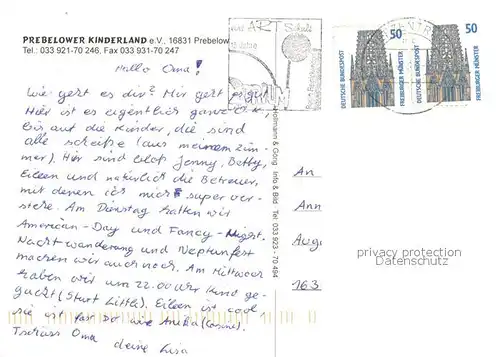 PREBELOWER KINDERLAND e.V., 16831 Prebelow
Tel.: 033 921-70 246, Fax 033 931-70 247
Hallo Oma!
Wie geht es dir? Mir geht es gut
Hier ist es eigentlich ganz O.k.,
bis auf die Kinder, die sind
alle scheiße (aus meinem Zim-
mer). Hier sind bloß Jenny, Betty,
Eileen und natürlich die Betreuer,
mit denen ich mich super ver-
stehe. Am Dienstag hatten wir
American-Day und Fancy-Night.
Nachtwanderung und Neptunfest
machen wir auch noch. Am Mittwoch
haben wir um 22.00 Uhr Kino ge-
guckt (Stuart Little). Eileen ist cool,
sie ist fast so wie Anika (Cousine).
Tschüss Oma
deine Lisa
Hoffmann & Görg Info & Bild Tel: 033 923 - 70 494
50
DEUTSCHE BUNDESPOST
FREIBURGER MÜNSTER
50
DEUTSCHE BUNDESPOST
FREIBURGER MÜNSTER
An
Ann
Aug
163
privacy protection
Datenschutz